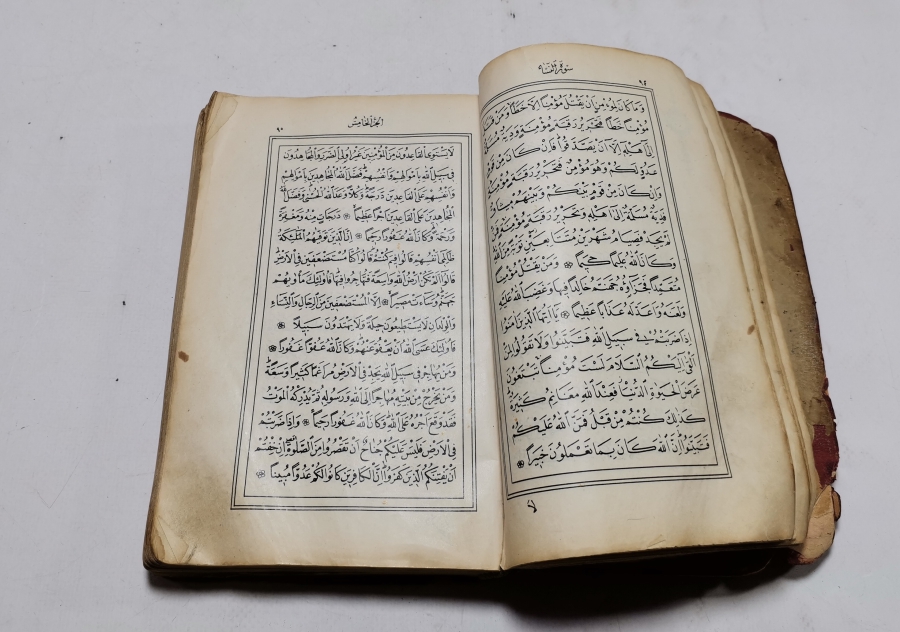 سورة النساء
٩٤
وَمَا كَانَ لِمُؤْمِنٍ اَنْ يَقْتُلَ مُؤْمِنًا اِلَّا خَطَأً وَمَنْ قَتَلَ
مُؤْمِنًا خَطَأً فَتَحْرِيرُ رَقَبَةٍ مُؤْمِنَةٍ وَدِيَةٌ مُسَلَّمَةٌ
اِلٰى اَهْلِهِ اِلَّا اَنْ يَصَّدَّقُوا فَاِنْ كَانَ مِنْ قَوْمٍ
عَدُوٍّ لَكُمْ وَهُوَ مُؤْمِنٌ فَتَحْرِيرُ رَقَبَةٍ مُؤْمِنَةٍ
وَاِنْ كَانَ مِنْ قَوْمٍ بَيْنَكُمْ وَبَيْنَهُمْ مِيثَاقٌ
فَدِيَةٌ مُسَلَّمَةٌ اِلٰى اَهْلِهِ وَتَحْرِيرُ رَقَبَةٍ مُؤْمِنَةٍ فَمَنْ
لَمْ يَجِدْ فَصِيَامُ شَهْرَيْنِ مُتَتَابِعَيْنِ تَوْبَةً مِنَ اللهِ
وَكَانَ اللهُ عَلِيمًا حَكِيمًا وَمَنْ يَقْتُلْ مُؤْمِنًا
مُتَعَمِّدًا فَجَزَاؤُهُ جَهَنَّمُ خَالِدًا فِيهَا وَغَضِبَ اللهُ عَلَيْهِ
وَلَعَنَهُ وَاَعَدَّ لَهُ عَذَابًا عَظِيمًا يَا اَيُّهَا الَّذِينَ اٰمَنُوا
اِذَا ضَرَبْتُمْ فِي سَبِيلِ اللهِ فَتَبَيَّنُوا وَلَا تَقُولُوا لِمَنْ
اَلْقٰى اِلَيْكُمُ السَّلَامَ لَسْتَ مُؤْمِنًا تَبْتَغُونَ
عَرَضَ الْحَيٰوةِ الدُّنْيَا فَعِنْدَ اللهِ مَغَانِمُ كَثِيرَةٌ
كَذٰلِكَ كُنْتُمْ مِنْ قَبْلُ فَمَنَّ اللهُ عَلَيْكُمْ
فَتَبَيَّنُوا اِنَّ اللهَ كَانَ بِمَا تَعْمَلُونَ خَبِيرًا
لا
الجزء الخامس
٩٥
لَا يَسْتَوِي الْقَاعِدُونَ مِنَ الْمُؤْمِنِينَ غَيْرُ اُولِي الضَّرَرِ وَالْمُجَاهِدُونَ
فِي سَبِيلِ اللهِ بِاَمْوَالِهِمْ وَاَنْفُسِهِمْ فَضَّلَ اللهُ الْمُجَاهِدِينَ بِاَمْوَالِهِمْ
وَاَنْفُسِهِمْ عَلَى الْقَاعِدِينَ دَرَجَةً وَكُلًّا وَعَدَ اللهُ الْحُسْنٰى وَفَضَّلَ اللهُ
الْمُجَاهِدِينَ عَلَى الْقَاعِدِينَ اَجْرًا عَظِيمًا دَرَجَاتٍ مِنْهُ وَمَغْفِرَةً
وَرَحْمَةً وَكَانَ اللهُ غَفُورًا رَحِيمًا اِنَّ الَّذِينَ تَوَفّٰيهُمُ الْمَلٰٓئِكَةُ
ظَالِمِي اَنْفُسِهِمْ قَالُوا فِيمَ كُنْتُمْ قَالُوا كُنَّا مُسْتَضْعَفِينَ فِي الْاَرْضِ
قَالُوا اَلَمْ تَكُنْ اَرْضُ اللهِ وَاسِعَةً فَتُهَاجِرُوا فِيهَا فَاُولٰئِكَ مَأْوٰيهُمْ
جَهَنَّمُ وَسَاءَتْ مَصِيرًا اِلَّا الْمُسْتَضْعَفِينَ مِنَ الرِّجَالِ وَالنِّسَاءِ
وَالْوِلْدَانِ لَا يَسْتَطِيعُونَ حِيلَةً وَلَا يَهْتَدُونَ سَبِيلًا
فَاُولٰئِكَ عَسَى اللهُ اَنْ يَعْفُوَ عَنْهُمْ وَكَانَ اللهُ عَفُوًّا غَفُورًا
وَمَنْ يُهَاجِرْ فِي سَبِيلِ اللهِ يَجِدْ فِي الْاَرْضِ مُرَاغَمًا كَثِيرًا وَسَعَةً
وَمَنْ يَخْرُجْ مِنْ بَيْتِهِ مُهَاجِرًا اِلَى اللهِ وَرَسُولِهِ ثُمَّ يُدْرِكْهُ الْمَوْتُ
فَقَدْ وَقَعَ اَجْرُهُ عَلَى اللهِ وَكَانَ اللهُ غَفُورًا رَحِيمًا وَاِذَا ضَرَبْتُمْ
فِي الْاَرْضِ فَلَيْسَ عَلَيْكُمْ جُنَاحٌ اَنْ تَقْصُرُوا مِنَ الصَّلٰوةِ اِنْ خِفْتُمْ
اَنْ يَفْتِنَكُمُ الَّذِينَ كَفَرُوا اِنَّ الْكَافِرِينَ كَانُوا لَكُمْ عَدُوًّا مُبِينًا